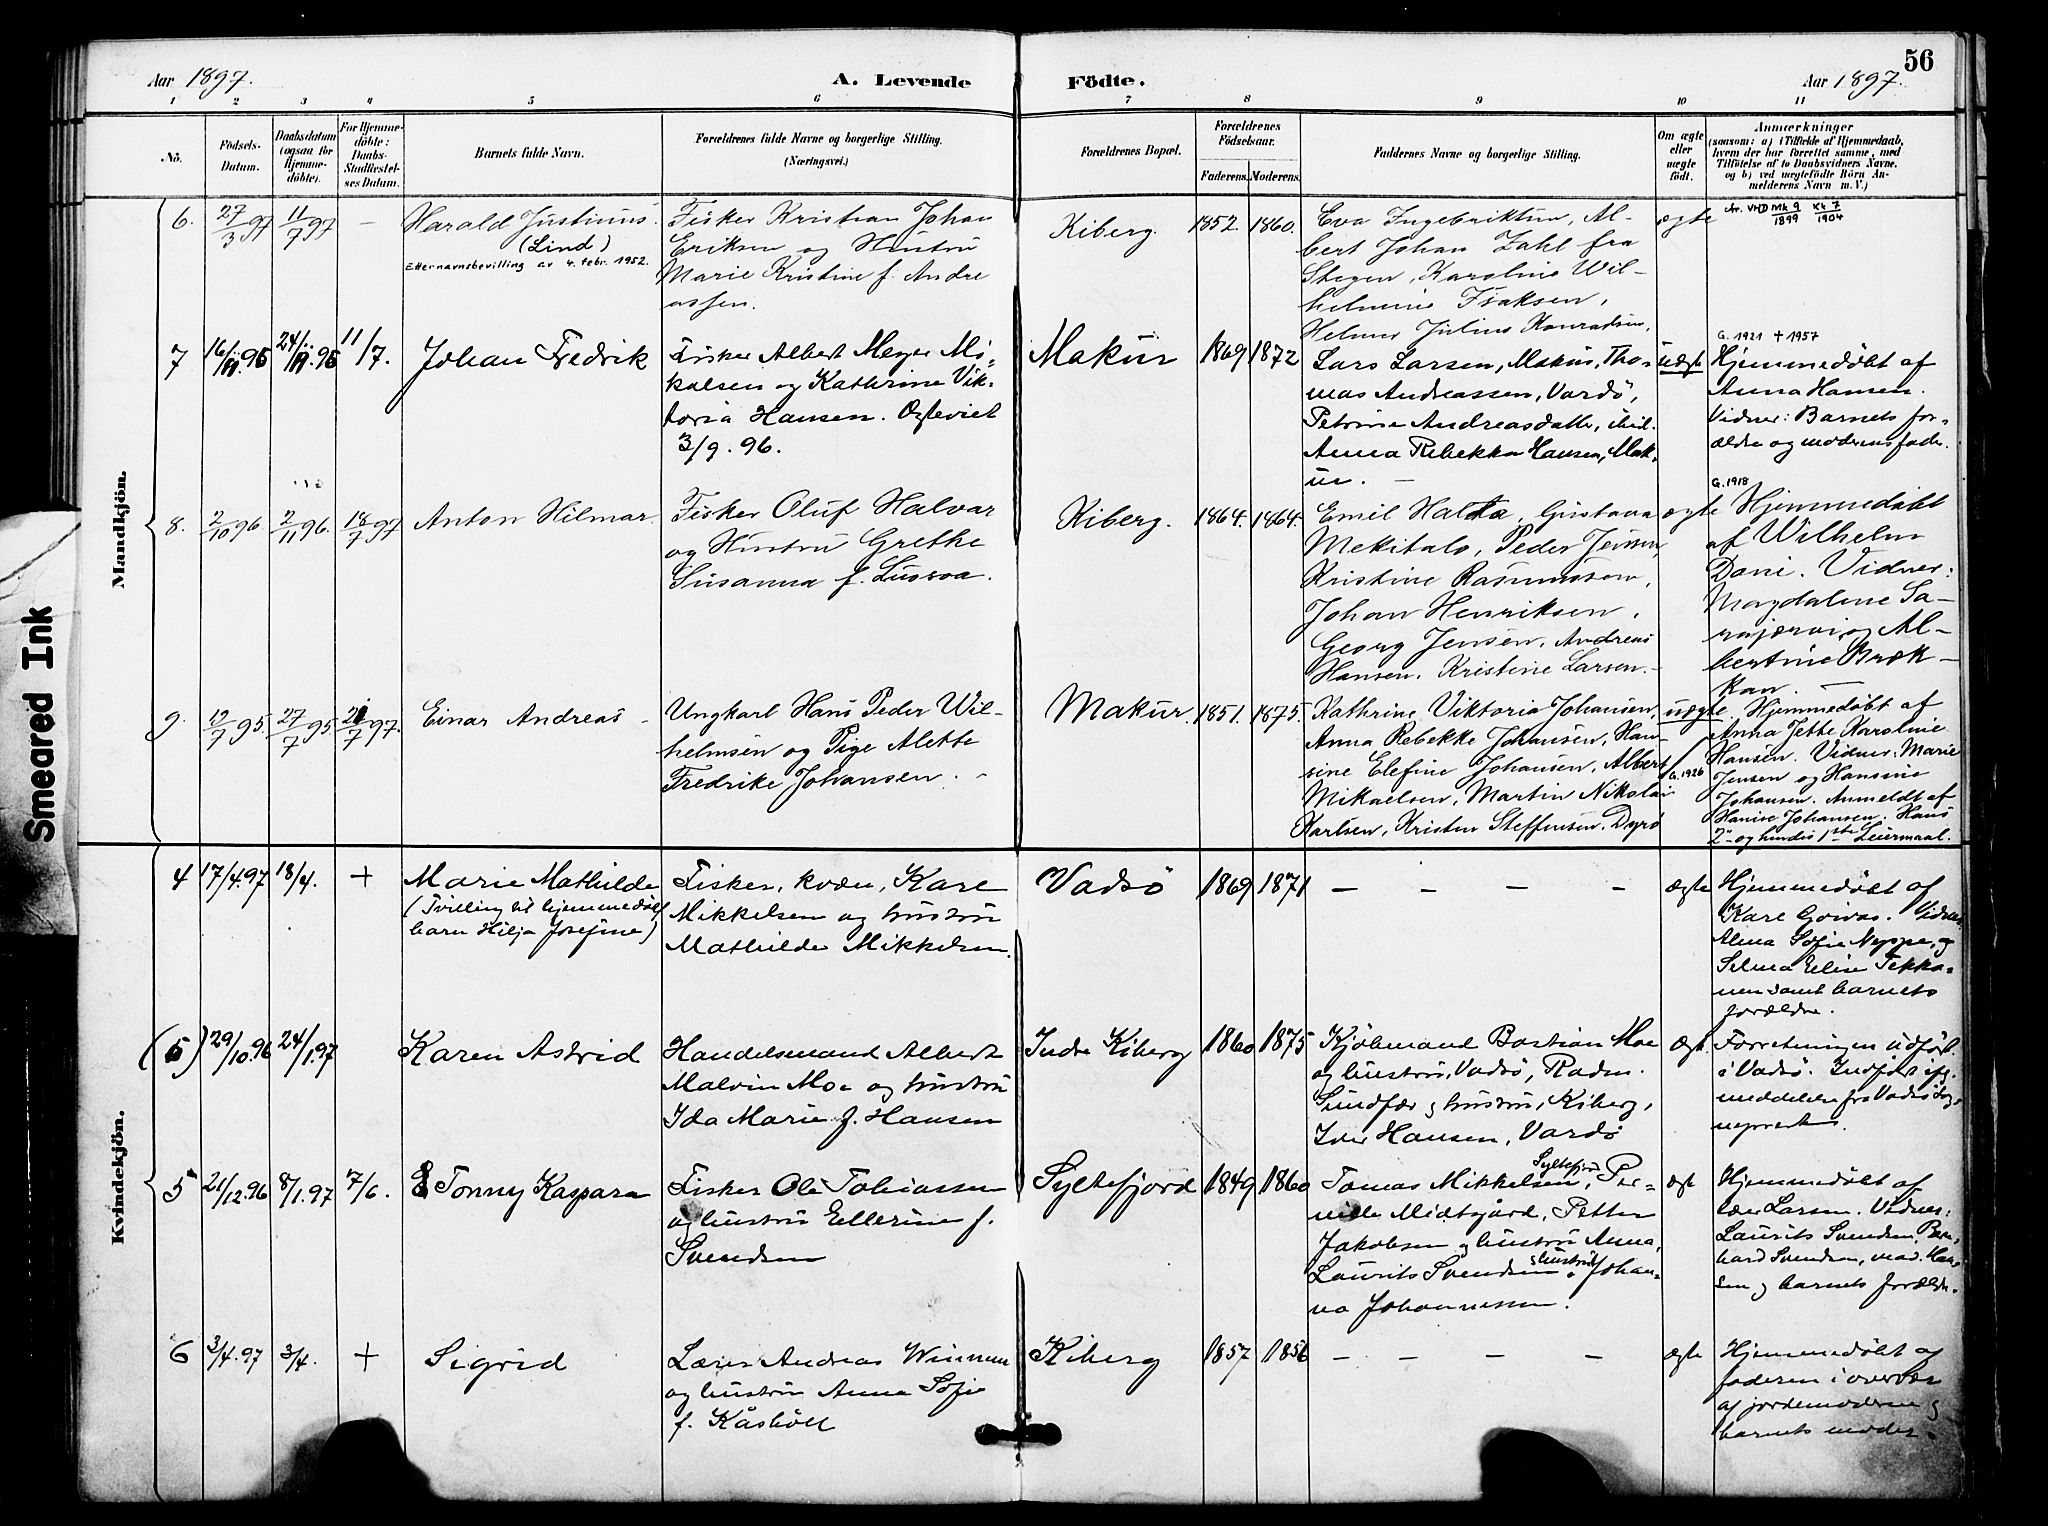 56
Aar 1897.
A. Levende
Födte.
Aar 1897.
1 2 3 4 5 6 7 8 9 10 11
Nö.
Födsels-
Datum.
Daabsdatum
(ogsaa for
Hjemme-
döbte).
For Hjemme-
döbte:
Daabs-
Stadfæstel-
ses Datum.
Barnets fulde Navn.
Forældrenes fulde Navne og borgerlige Stilling.
(Næringsvei.)
Forældrenes Bopæl.
Forældrenes
Födselsaar.
Faderens. Moderens.
Faddernes Navne og borgerlige Stilling.
Om ægte
eller
uægte
födt.
Anmærkninger
(saasom: a) i Tilfælde af Hjemmedaab,
hvem der har forrettet samme, med
Tilföielse af to Daabsvidners Navne,
og b) ved uægtefödte Börn An-
melderens Navn m. V.)
Mandkjön.
6. 27/3 97 11/7 97 –
Harald Justinus.
(Lind)
Etternavnsbevilling av 4. febr. 1952.
Fisker Kristian Johan
Eriksen og Hustru
Marie Kristine f. Andre
assen.
Kiberg. 1852. 1860.
Eva Ingebriktsen, Al-
bert Johan Zahl fra
Stegen, Karoline Wil-
helmine Isaksen,
Helmer Julius Konradsen.
ægte
Mk 9 1899 Kk 7 1904
7 16/11.95 24/11.95 11/7.
Johan Fredrik
Fisker Albert Meyer Mi-
kalsen og Kathrine Vik-
toria Hansen. Ægteviet
3/9.96.
Makur 1869 1872
Lars Larsen, Makur, Tho-
mas Andreassen, Vardö,
Petrine Andreasdatter, ibid.
Anna Rebekka Hansen, Mak-
ur. –
uægte
G. 1921 + 1957
Hjemmedöbt af
Anna Hansen.
Vidner: Barnets for-
ældre og moderens fader.
8. 2/10 96. 2/11 96. 18/7 97
Anton Hilmar.
Fisker Oluf Halvar
og Hustru Grethe
Susanna f. Lusroa.
Kiberg. 1864. 1864.
Emil Halta, Gustava
Mekitalo, Peder Jensen
Kristine Rasmussen,
Johan Henriksen,
Georg Jensen, Andreas
Hansen, Kristine Larsen. –
ægte
G. 1918
Hjemmedöbt
af Wilhelm
Dani. Vidner:
Magdalene Sa-
rajærvi og Al-
bertine Bræk-
kan. –
9. 19/7 95. 27/7 95. 21/7 97.
Einar Andreas –
Ungkarl Hans Peder Wil-
helmsen og Pige Alette
Fredrike Johansen. –
Makur. 1851. 1875.
Kathrine Viktoria Johansen,
Anna Rebekke Johansen, Han-
sine Elefine Johansen, Albert
Mikaelsen, Martin Nikolai
Karlsen, Kristen Steffensen, Dyrö
uægte.
G. 1926
Hjemmedöbt af
Anna Jette Karoline
Hansen. Vidner: Marie
Jensen og Hansine
Johansen. Anmeldt af
Hansine Johansen. Hans
2det og hendes 1ste Leiermaal.
Kvindekjön.
4 17/4.97 18/4. +
Marie Mathilde
(Tvilling til hjemmedöbt
barn Hilja Josefine)
Fisker, kvæn, Karl
Mikkelsen og hustru
Mathilde Mikkelsen.
Vadsö 1869 1871
– – – –
ægte
Hjemmedöbt af
Karl Goivas. Vidner,
Alma Sofie Nyppe, og
Selma Elise Tekka-
nen samt barnets
forældre.
(5) 29/10.96 24/1.97
Karen Astrid
Handelsmand Albert
Malvin Moe og hustru
Ida Marie f. Hansen
Indre Kiberg 1860 1875
Kjöbmand Bastian Moe
og hustru, Vadsö, Radm.
Sundfær og hustru, Kiberg,
Iver Hansen, Vardö
ægt.
Forretningen udfört
i Vadsö. Indfört ifg.
meddelelse fra Vadsö Sog-
neprest.
5 21/12.96 8/1.97 7/6.
Tonny Kaspara
Fisker Ole Tobiassen
og hustru Ellerine f.
Svendsen
Syltefjord 1849 1860
Tomas Mikkelsen, Syltefjord, Per-
nille Midtgård, Petter
Jakobsen og hustru Anna,
Laurits Svendsen, hustru, Johan-
na Johannessen.
ægt
Hjemmedöbt af
Larsen. Vidner:
Laurits Svendsen, Bern-
hard Svendsen, mad. Han-
sen og barnets forældre.
6 3/4.97 3/4. +
Sigrid
Lærer Andreas
og hustru Anna Sofie
f. Kåsböll
Kiberg 1857 1856
– – – –
ægte
Hjemmedöbt af
faderen i overvær
af jordemoderen og
barnets moder.
Smeared Ink